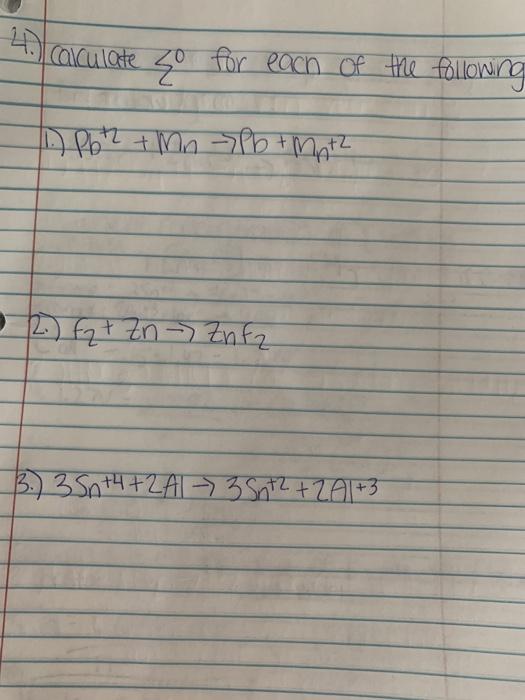 4.) calculate ξ° for each of the following
1.) Pb+2 + Mn → Pb + Mn+2
2.) F2 + Zn → ZnF2
3.) 3Sn+4 + 2Al → 3Sn+2 + 2Al+3